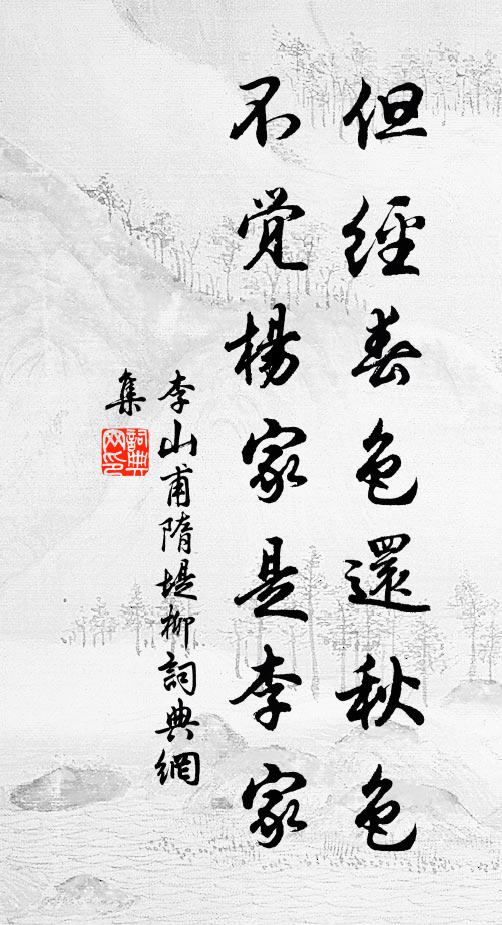 但經春色還秋色
不觉楊家是李家
李山甫隋堤柳詞典網
集
詞典
网印